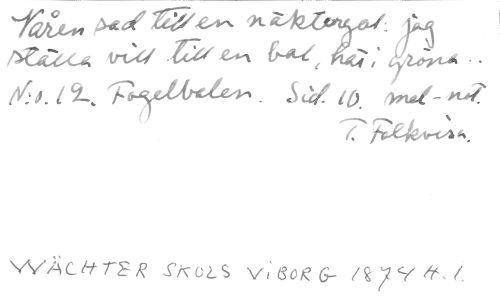 Våren sad till en näktergal: jag
ställa vill till en bal, här i gröna..
N:o. 12. Fogelbalen. Sid. 10. mel-not.
T. Folkvisa.
WÄCHTER SKOLS VIBORG 1874 H. 1.